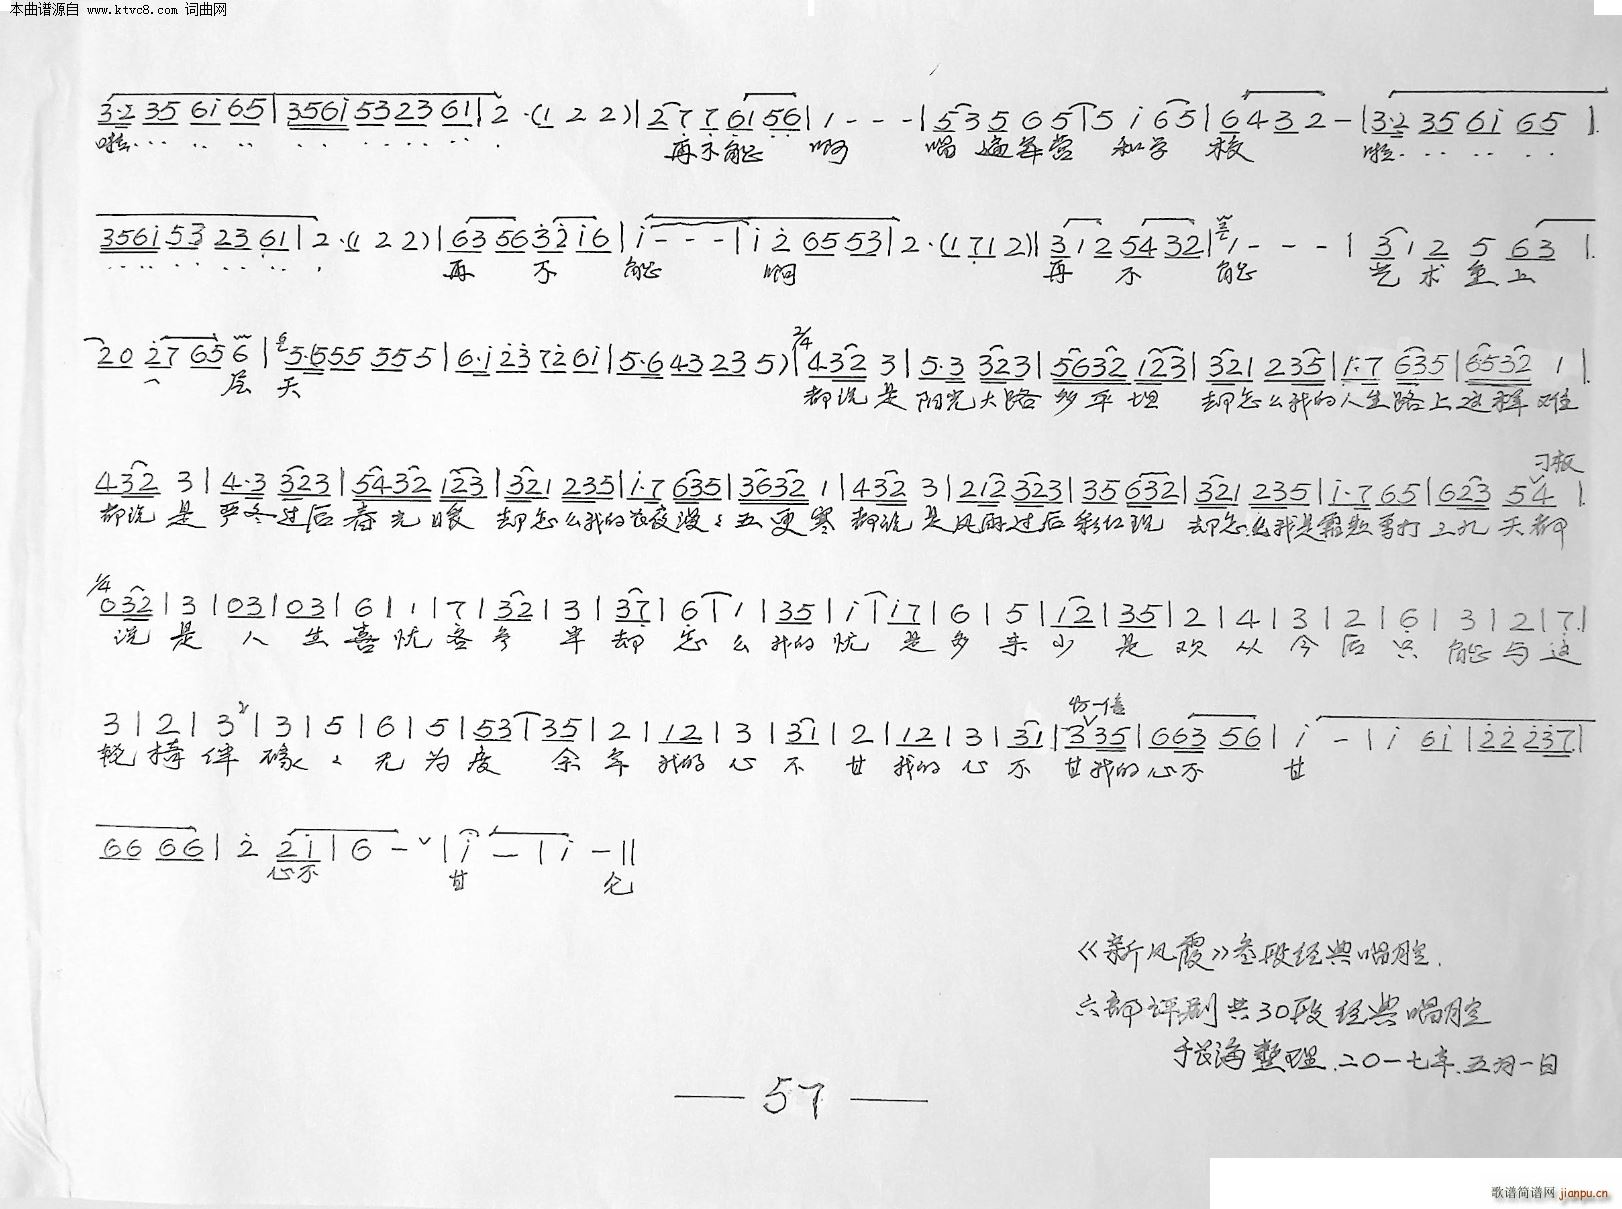 本曲谱源自 www.ktvc8.com 词曲网
3·2 35 6i 65 | 356i 5323 61 | 2 ·(1 2 2) | 27 7 61 56 | 1 - - - | 53 5 6 5 | 5 i 65 | 6432 - | 3·2 35 6i 65 |
啦 再不能 啊 唱遍军营 和学校 啦
356i 53 23 61 | 2·(1 2 2) | 63 56 32 i6 | i - - - | i 2 65 53 | 2·(1 71 2) | 3 12 54 32 | 1 - - - | 3 1 2 5 63 |
再 不 能 啊 再 不 能 艺术至上
20 27 65 6 | 5·555 555 | 6·i 23 72 6i | 5·6 43 23 5) | 2/4 432 3 | 5·3 323 | 5632 123 | 321 235 | 1·7 635 | 6532 1 |
层 天 都说是阳光大路多平坦 却怎么我的人生路上这样难
432 3 | 4·3 323 | 5432 123 | 321 235 | i·7 635 | 3632 1 | 432 3 | 212 323 | 35 632 | 321 235 | i·7 65 | 623 54 |
都说是严冬过后春光暖 却怎么我的长夜漫々五更寒 都说是风雨过后彩虹现 却怎么我是霜 打 九天都
1/4 032 | 3 | 03 | 03 | 6 | 1 | 7 | 32 | 3 | 37 | 6 | 1 | 35 | i | i7 | 6 | 5 | 12 | 35 | 2 | 4 | 3 | 2 | 6 | 3 | 2 | 7 |
说是人生喜忧各参半 却怎么我的忧是多来少是欢 从今后只能与这
3 | 2 | 3 | 3 | 5 | 6 | 5 | 53 | 35 | 2 | 12 | 3 | 31 | 2 | 12 | 3 | 31 | 335 | 663 56 | i - | i 6i | 22 237 |
轮椅伴 碌々无为度余年 我的心不甘 我的心不甘 我的心不 甘
66 66 | 2 2i | 6 - | i - | i - ||
心不 甘
《新凤霞》叁段经典唱腔.
六部评剧共30段经典唱腔
长海整理.二〇一七年.五月一日
— 57 —
歌谱简谱网 jianpu.cn